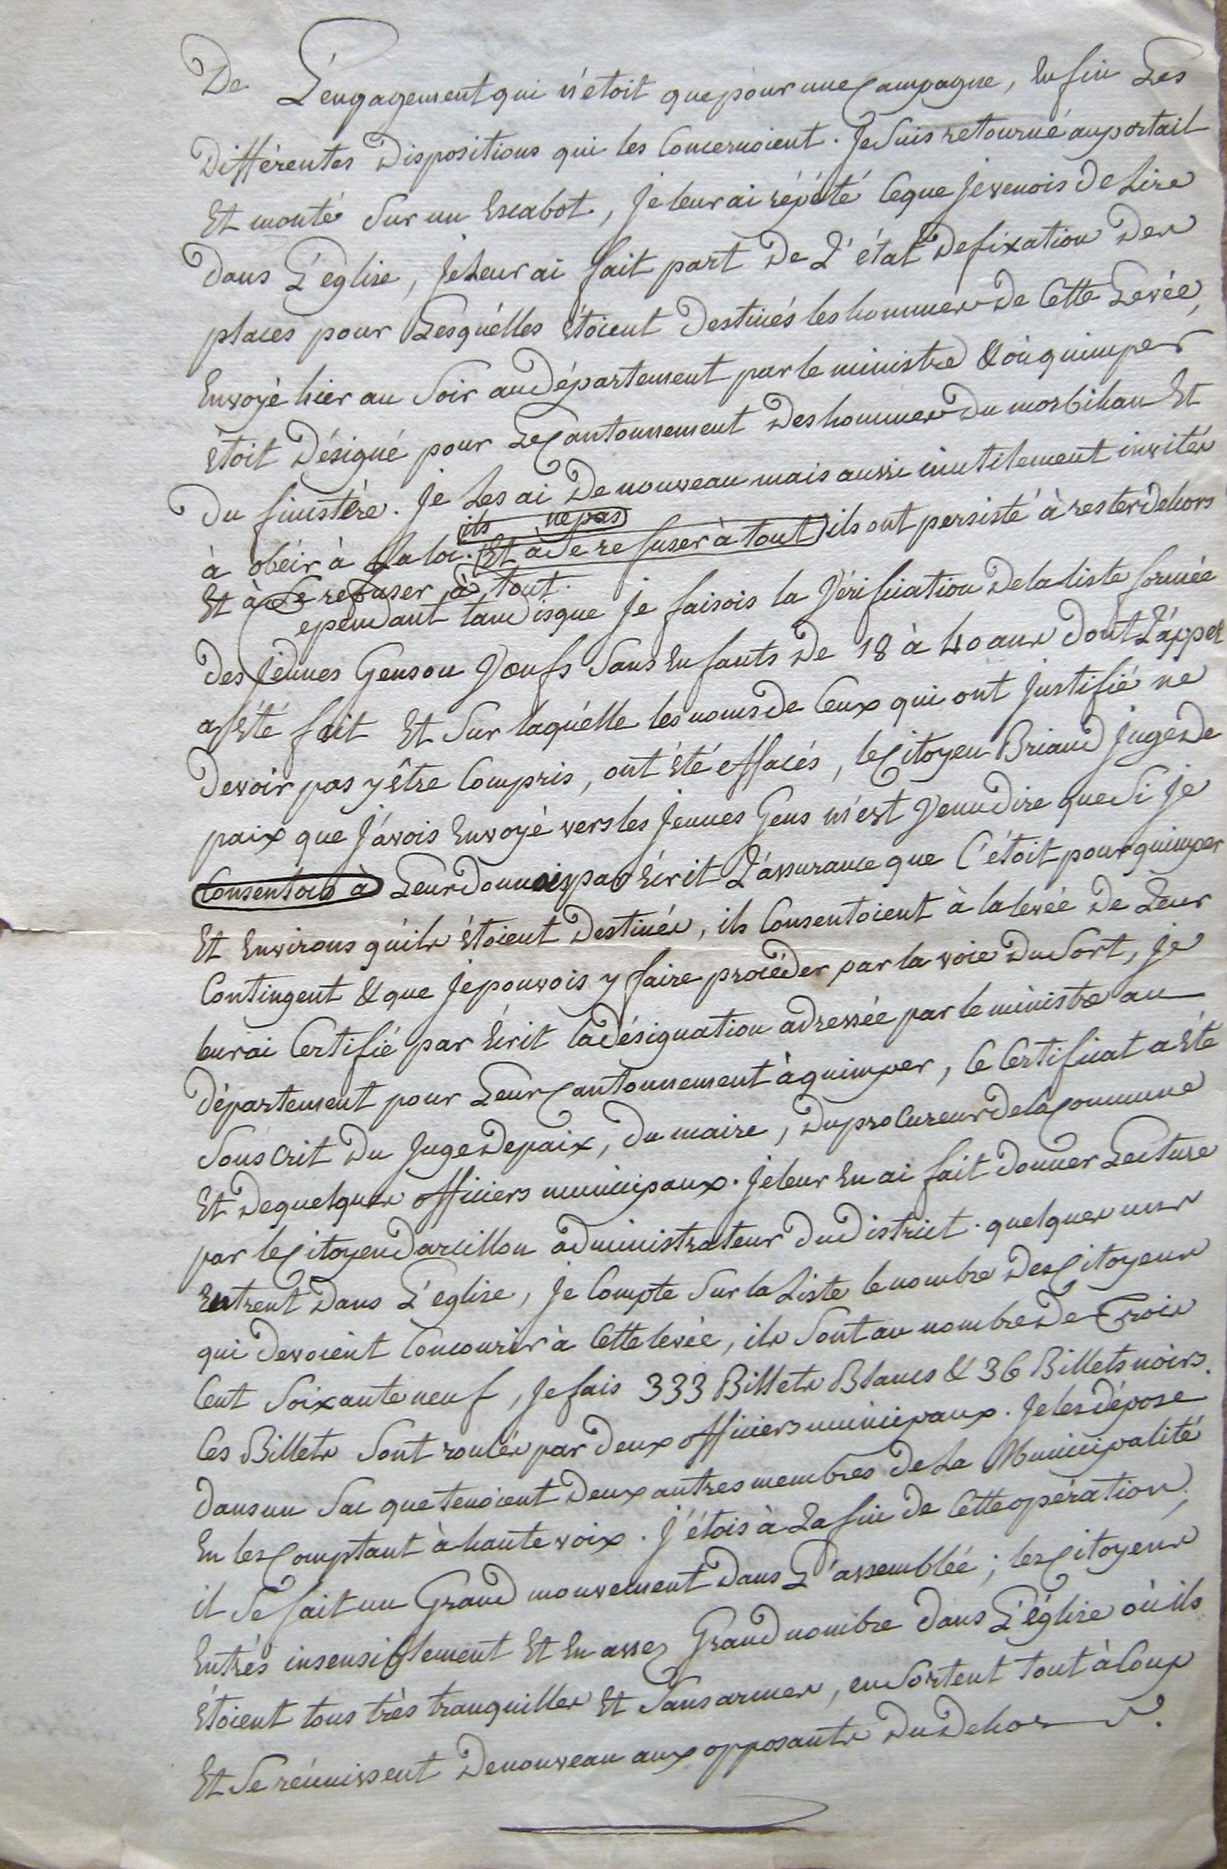 De L'engagement qui n'étoit que pour une Campagne, Enfin Les
Différentes Dispositions qui les Concernoient. Je suis retourné au portail
Et monté sur un Escabot, je leur ai répété Ce que je venois de Lire
dans L'église, je Leur ai fait part de L'état de fixation des
places pour Lesquélles étoient destinés les hommes de Cette Levée,
Envoyé hier au Soir au département par le ministre & où quimper
étoit Désigné pour Le Cantonnement Des hommes Du morbihan Et
Du finistère. Je Les ai De nouveau mais aussi inutilement invités
ils ne pas
à obéir à La loi. Et à Se refuser à tout ils ont persisté à rester dehors
Et à Se refuser à tout.
Cependant tandisque je faisois la Vérification de la liste formée
des Jeunes Gens ou Vœufs Sans Enfants De 18 à 40 ans dont L'appel
a Été fait Et Sur laquélle les noms de Ceux qui ont justifié ne
devoir pas y être Compris, ont été effacés, le Citoyen Briand juge de
paix que j'avois Envoyé vers les jeunes Gens m'est Venu dire que Si je
Consentois à Leur donnois par Écrit L'assurance que C'étoit pour quimper
Et Environs qu'ils étoient Destinés, ils Consentoient à la levée De Leur
Contingent & que je pouvois y faire procéder par la voie Du Sort, je
leur ai Certifié par Écrit la désignation adressée par le ministre au
département pour Leur Cantonnement à quimper, Ce Certificat a Été
Souscrit Du Juge De paix, Du maire, Du procureur de la Commune
Et De quelques officiers municipaux. Je leur En ai fait donner Lecture
par le Citoyen Darcillon administrateur du District. quelques uns
Entrent Dans L'église, je Compte Sur la Liste le nombre Des Citoyens
qui devoient Concourir à Cette levée, ils Sont au nombre De Trois
Cent Soixante neuf, je fais 333 Billets Blancs & 36 Billets noirs.
Ces Billets Sont roulés par deux officiers municipaux. Je les dépose
dans un Sac que tenoient Deux autres membres de La Municipalité
En les Comptant à haute voix. J'étois à La fin de Cette opération,
il Se fait un Grand mouvement Dans L'assemblée ; les Citoyens
Entrés insensiblement Et En assez Grand nombre dans L'église où ils
étoient tous très tranquilles Et Sans armes, en Sortent tout à Coup
Et Se réunissent De nouveau aux opposants Du Dehors.